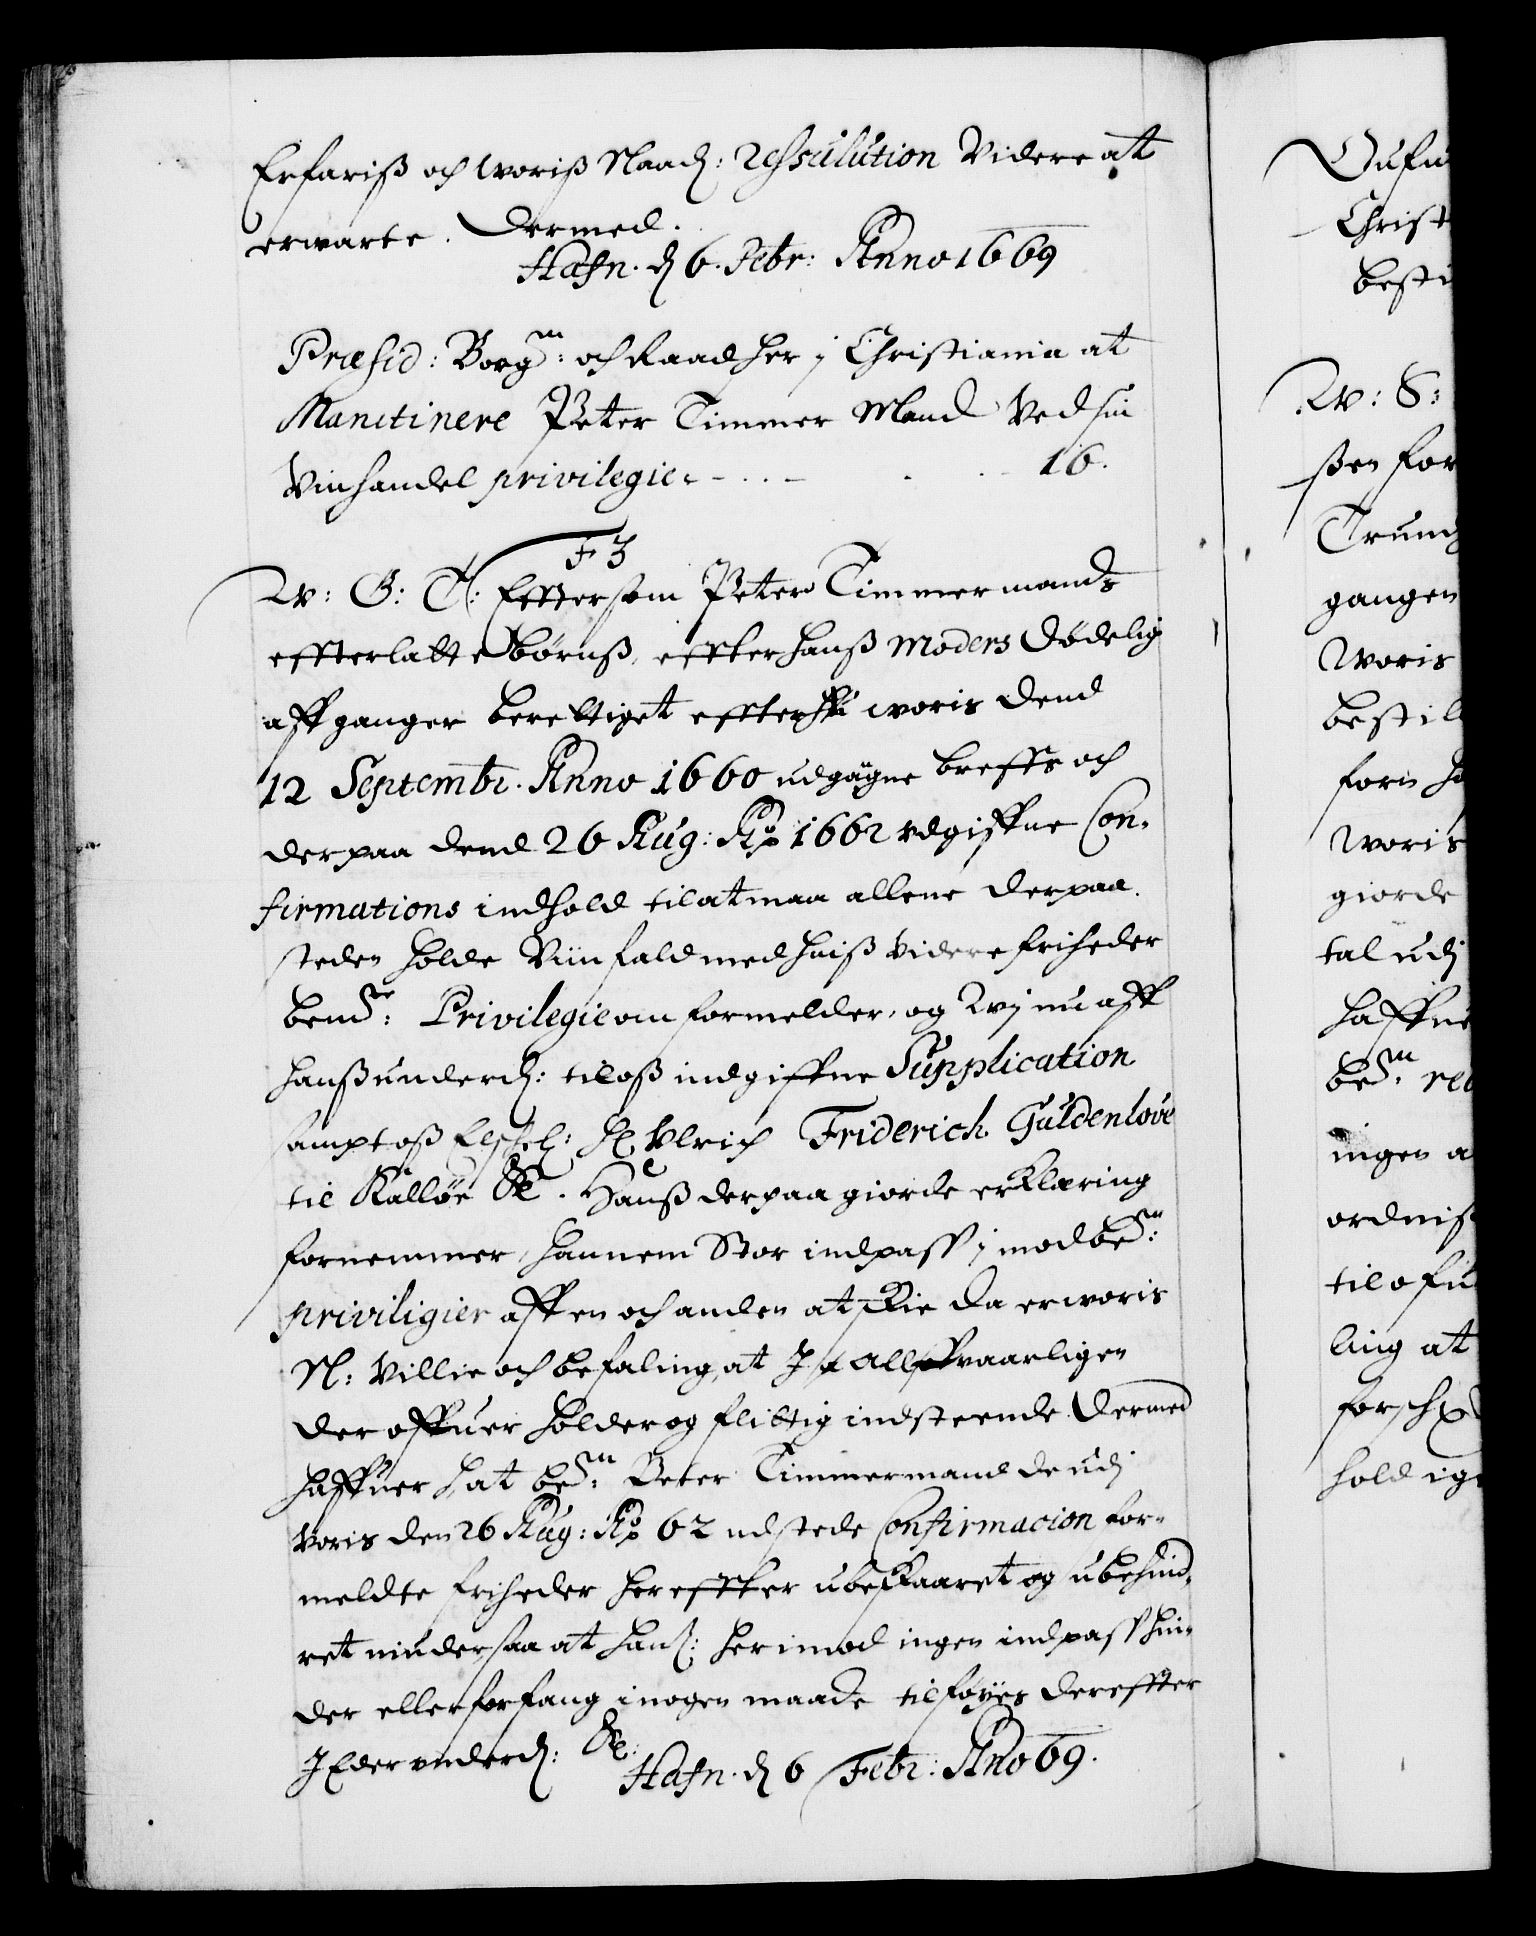 Erfariß och woriß Naad: Ressulution Videre at
erwarte. Dermed.
Hafn. d 6. Febr: Anno 1669
Præsid: Borgm: och Raad her j Christiania at
Manutinere Peter Timmer Mand Ved sin
Vinhandel privilegie - . . - . . 16.
F 3
W: G: T: Efftersom Peter Timmermands
effterlatte børnß, effter hanß Moders dødelig
affganger berettiget effter woris dend
12 Septembr. Anno 1660 udgagne breffs och
derpaa dend 26 Aug: Ao 1662 udgiffne Con-
firmations indhold til at maa allene derpaa
steden holde Viinfald med huiß videre friheder
bemte: Privilegie om formelder, og Wj nu aff
hanß underd: til oß indgiffne Supplication
sampt oß Elschel: H Vlrich Friderich Guldenlove
til Kalløe &c. Hanß derpaa giorde erklæring
fornemmer, hannem Stor indpass j mod bem:
priviligier aff en och anden at skie da er woris
N: Villie och befaling, at J allfvaarligen
der offuer holder og flittig indseende dermed
haffuer, at bem: Peter Timmermand de udj
Voris den 26 Aug: Ao 62 udstede Confirmacion for-
meldte friheder her effter ubeskaaret og ubehind-
ret niuder saa at hanß: her imod ingen indpass hin-
der eller forfang i nogen maade tilføyes der effter
J Eder underd: &c:
Hafn. d 6 Febr: Ano 69.
Oufu
Christ
besti
W: S:
ßen for
Trund
gangen
Woris
bestil
forn h
Woris
giorde
tal udj
haffue
bem: re
ingen a
ordniß
til ofu
ling at
forsch
hold ige